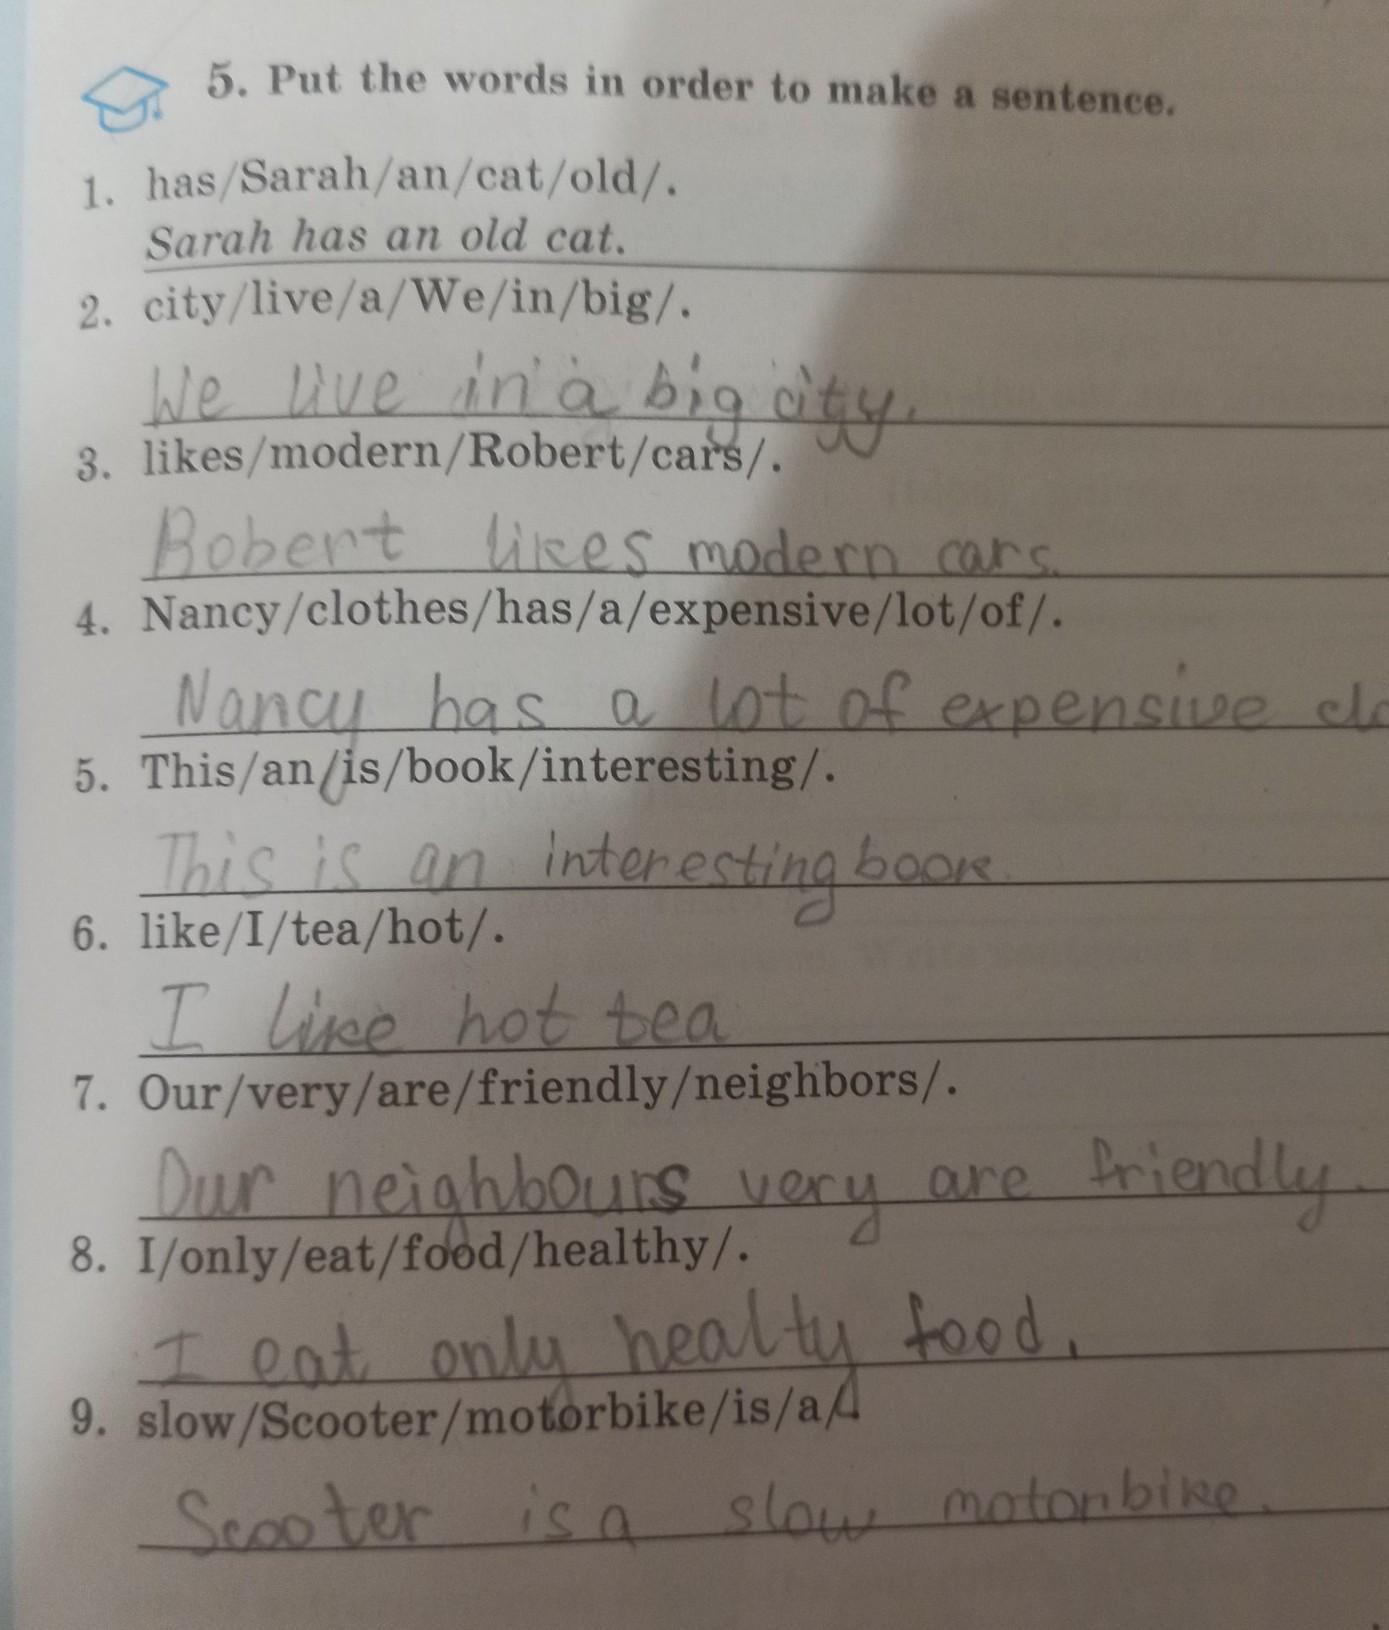 5. Put the words in order to make a sentence.
1. has/Sarah/an/cat/old/.
Sarah has an old cat.
2. city/live/a/We/in/big/.
We live in a big city.
3. likes/modern/Robert/cars/.
Robert likes modern cars.
4. Nancy/clothes/has/a/expensive/lot/of/.
Nancy has a lot of expensive clo
5. This/an/is/book/interesting/.
This is an interesting book.
6. like/I/tea/hot/.
I like hot tea
7. Our/very/are/friendly/neighbors/.
Our neighbours very are friendly.
8. I/only/eat/food/healthy/.
I eat only healty food.
9. slow/Scooter/motorbike/is/a/.
Scooter is a slow motorbike.